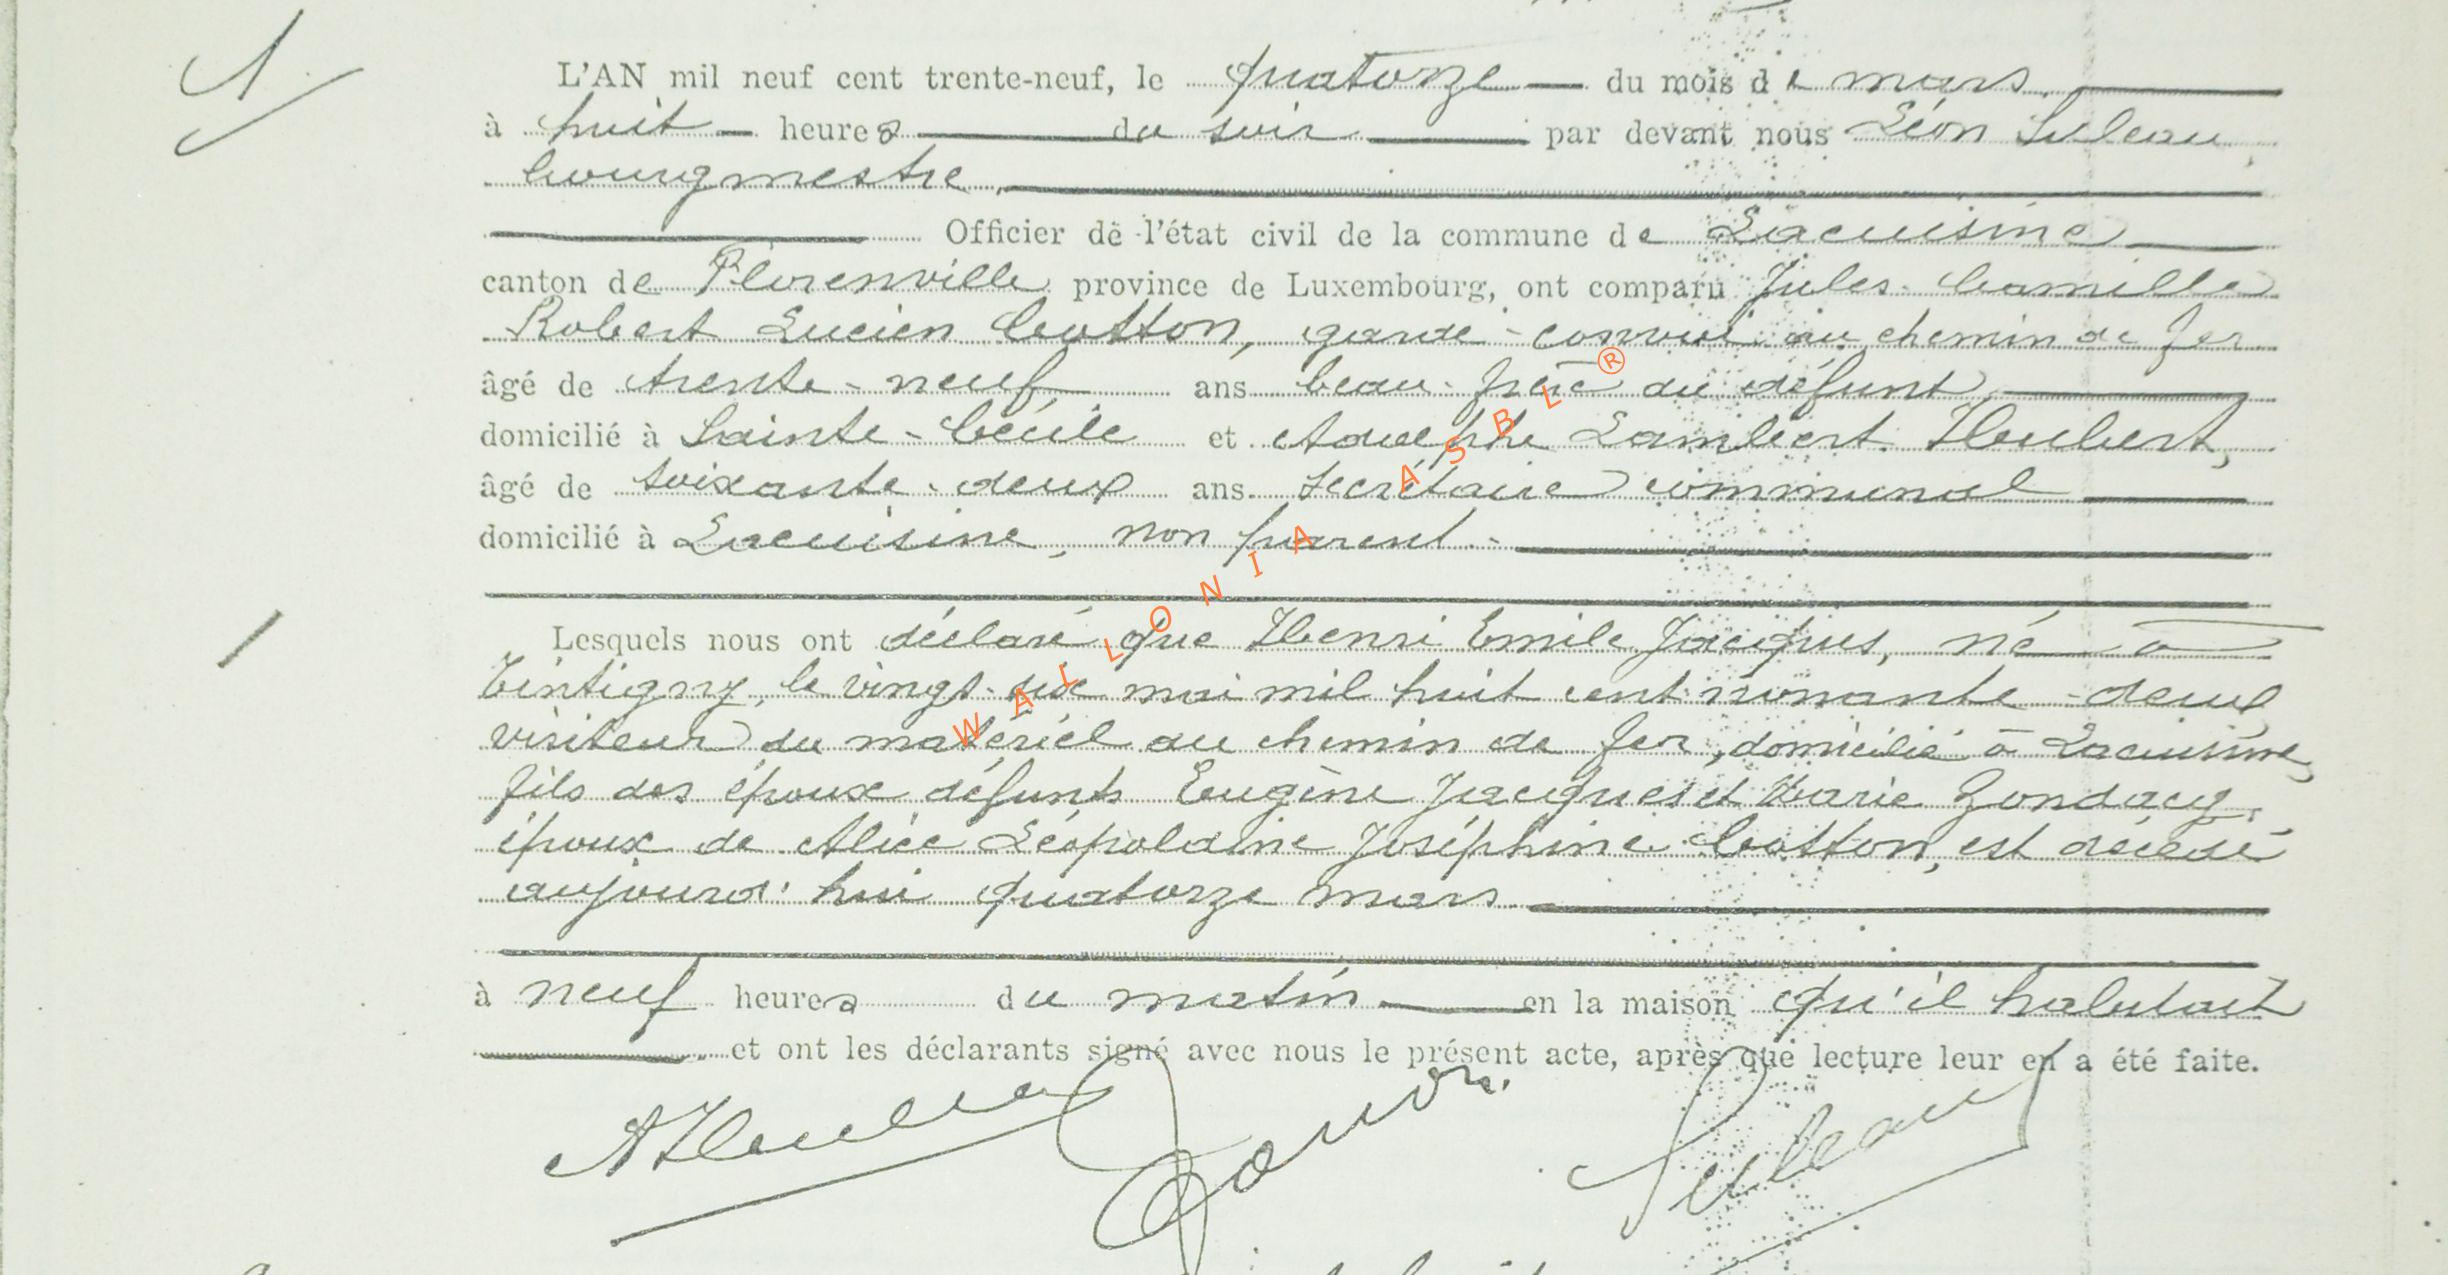 L'AN mil neuf cent trente-neuf, le quatorze — du mois de mars.
à huit — heures du soir par devant nous Léon Suleau
bourgmestre,
Officier de l'état civil de la commune de Lacuisine
canton de Florenville province de Luxembourg, ont comparu Jules Camille
Robert Lucien Cotton, garde-convoi au chemin de fer
âgé de trente-neuf ans beau-frère du défunt,
domicilié à Sainte-Cécile et Adolphe Lambert Heubert,
âgé de soixante-deux ans secrétaire communal
domicilié à Lacuisine, non parent.
Lesquels nous ont déclaré que Henri Emile Jacques, né à
Tintigny, le vingt-six mai mil huit cent nonante-deux
visiteur du matériel au chemin de fer, domicilié à Lacuisine,
fils des époux défunts Eugène Jacques et Marie Gondacq,
époux de Alice Léopoldine Joséphine Cotton, est décédé
aujourd'hui quatorze mars
à neuf heures du matin en la maison qu'il habitait
et ont les déclarants signé avec nous le présent acte, après que lecture leur en a été faite.
Suleau
WALLONIA ASBL®